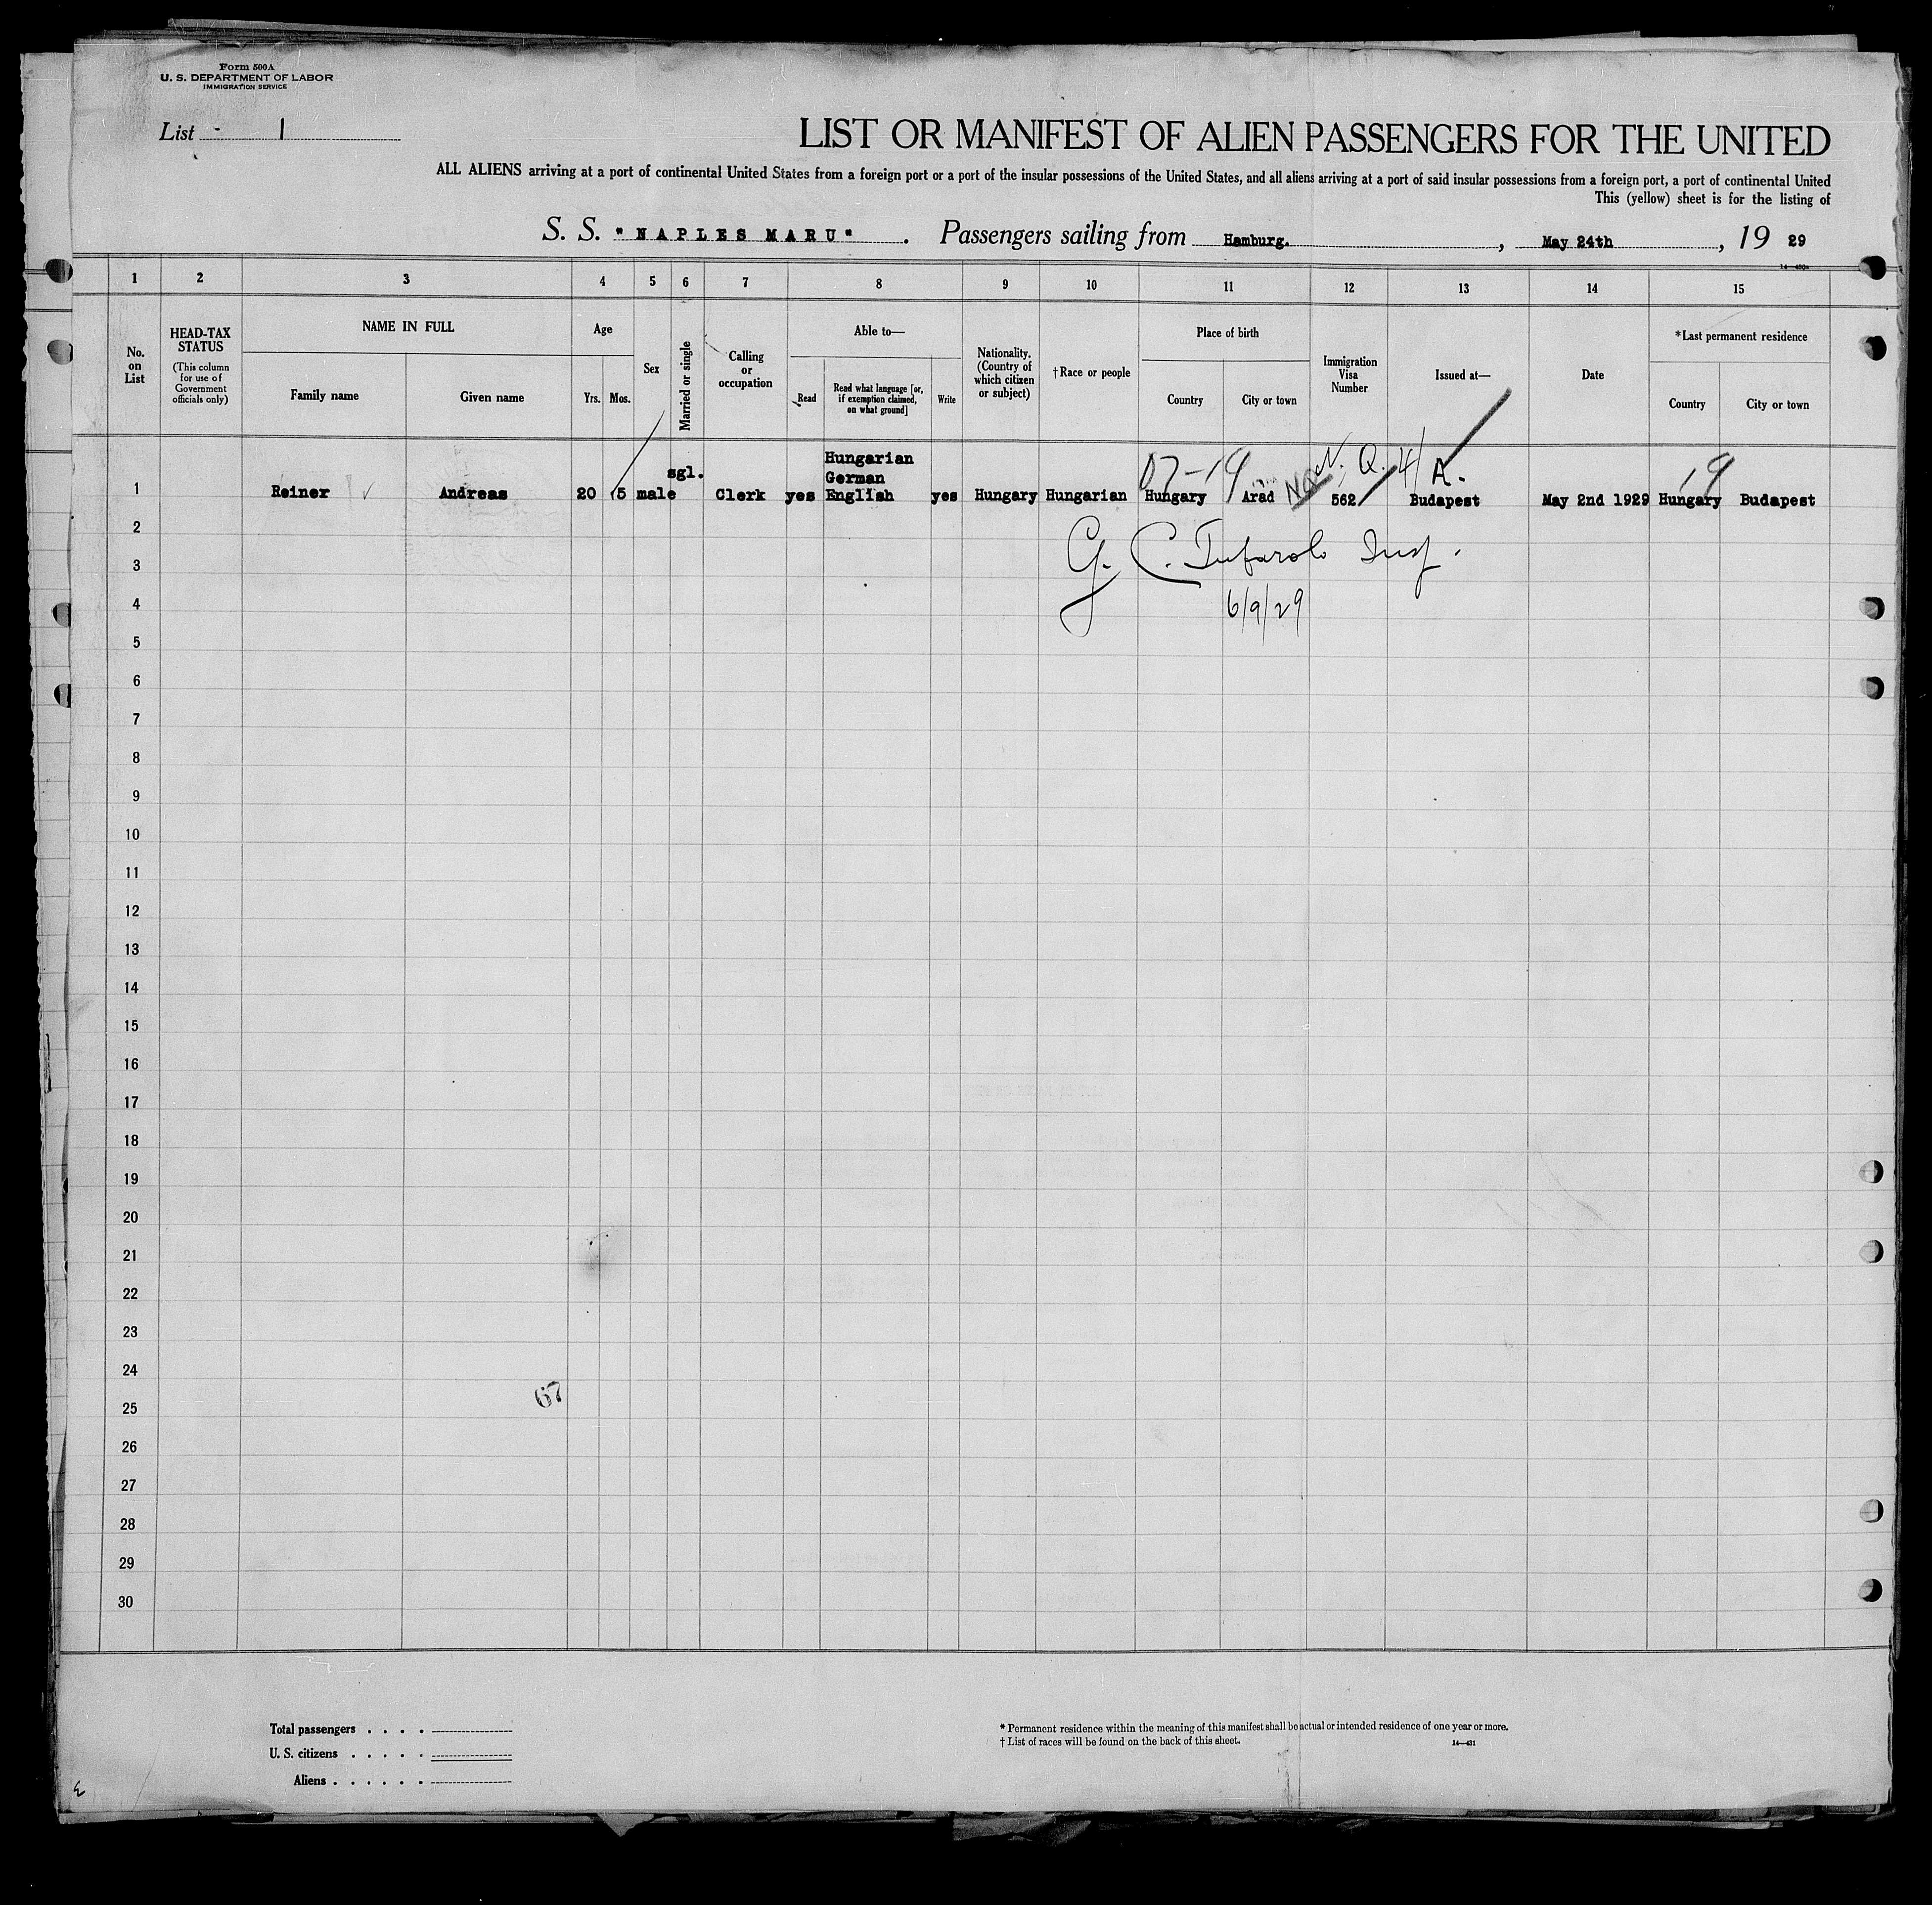 Form 500A
U. S. DEPARTMENT OF LABOR
IMMIGRATION SERVICE
List - 1
LIST OR MANIFEST OF ALIEN PASSENGERS FOR THE UNITED
ALL ALIENS arriving at a port of continental United States from a foreign port or a port of the insular possessions of the United States, and all aliens arriving at a port of said insular possessions from a foreign port, a port of continental United
This (yellow) sheet is for the listing of
S. S. "NAPLES MARU". Passengers sailing from Hamburg. , May 24th , 19 29
1 2 3 4 5 6 7 8 9 10 11 12 13 14 15
No. on List
HEAD-TAX STATUS
(This column for use of Government officials only)
NAME IN FULL
Family name Given name
Age
Yrs. Mos.
Sex
Married or single
Calling or occupation
Able to—
Read
Read what language [or, if exemption claimed, on what ground]
Write
Nationality. (Country of which citizen or subject)
†Race or people
Place of birth
Country City or town
Immigration Visa Number
Issued at—
Date
*Last permanent residence
Country City or town
07-19 N. Q. 4 A. 19
1 Reiner Andreas 20 5 male sgl. Clerk yes Hungarian German English yes Hungary Hungarian Hungary Arad NQ 562 Budapest May 2nd 1929 Hungary Budapest
2
G. C. Insp.
3
4
6/9/29
5
6
7
8
9
10
11
12
13
14
15
16
17
18
19
20
21
22
23
24
67
25
26
27
28
29
30
Total passengers . . . .
U. S. citizens . . . . .
Aliens . . . . . .
* Permanent residence within the meaning of this manifest shall be actual or intended residence of one year or more.
† List of races will be found on the back of this sheet.
14—431